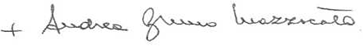 + Andrea Bruno Mazzocato